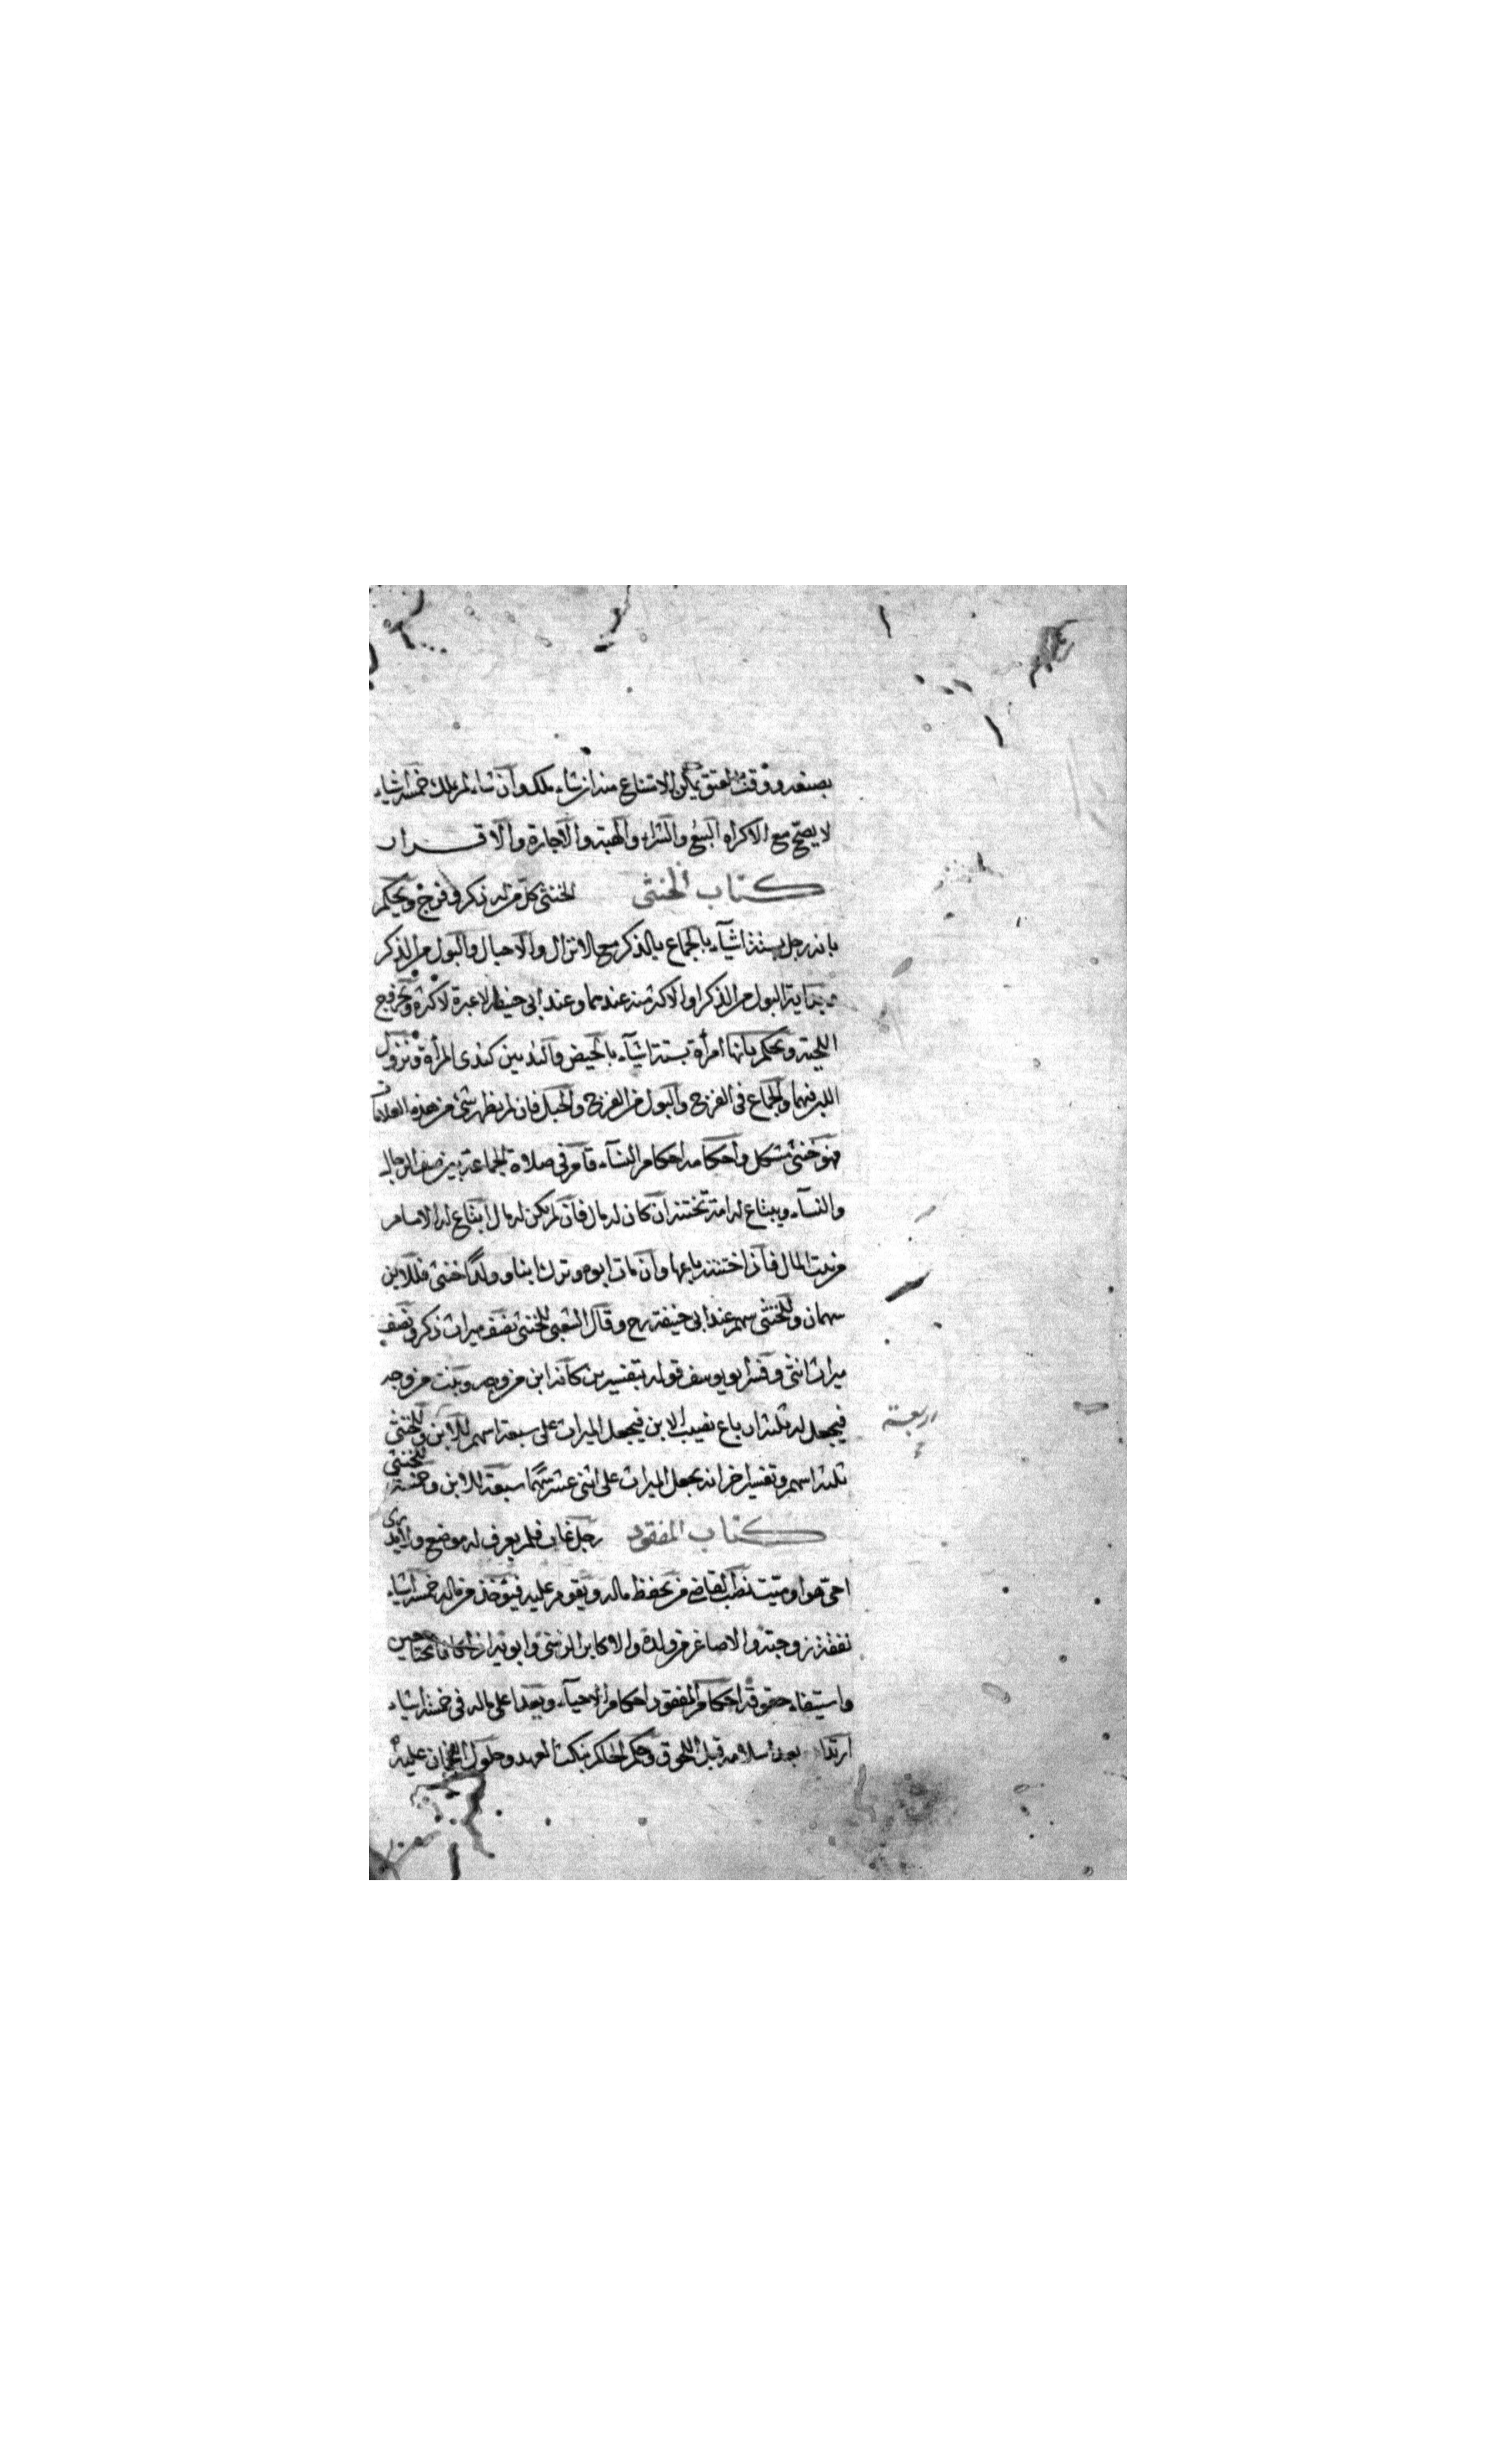 بصنعه ووقت العتق يمكن الامتناع منه ان شاء ملك وان شاء لم يملك خمسة اشياء
لا يصح مع الاكراه البيع والشراء والهبة والاجارة والاقرار
كتاب الخنثى الخنثى كل من له ذكر وفرج ويحكم
بانه رجل بستة اشياء بالجماع بالذكر مع الانزال والاحبال والبول من الذكر
بداية البول من الذكر او الاكثر منه عندهما وعند ابي حنيفة لا عبرة لاكثره وتخرج
اللحية ويحكم بانها امرأة بستة اشياء بالحيض والثديين كثدي المرأة ونزول
اللبن فيهما والجماع في الفرج والبول من الفرج والحبل فان لم يظهر شيء من هذه العلامات
فهو خنثى مشكل واحكامه احكام النساء قام في صلاة الجماعة بين صف الرجال
والنساء ويبتاع له امة تختنه ان كان له مال فان لم يكن له مال ابتاع له الامام
من بيت المال فاذا ختنته باعها وان مات ابوه وترك ابنا وولدا خنثى فللابن
سهمان وللخنثى سهم عند ابي حنيفة رح وقال الشعبي للخنثى نصف ميراث ذكر ونصف
ميراث انثى وفسر ابو يوسف قوله بتفسيرين كانه ابن من وجه وبنت من وجه
فيجعل له ثلثة ارباع نصيب الابن فيجعل الميراث على سبعة اسهم للابن وللخنثى
اربعة
ثلثة اسهم وتفسير اخر انه يجعل الميراث على اثنى عشر سهما سبعة للابن وخمسة للخنثى
كتاب المفقود رجل غاب فلم يعرف له موضع ولا يدرى
احي هو او ميت نصب القاضي من يحفظ ماله ويقوم عليه فيؤخذ من ماله خمسة اشياء
نفقة زوجته والاصاغر من ولده والاكابر الزمنى وابويه اذا كانا محتاجين
واستيفاء حقوقه احكام المفقود احكام الاحياء على ماله في خمسة اشياء
ارتداده بعد اسلامه قبل اللحوق وحكم الحاكم بنكث العهد وحلول عليه